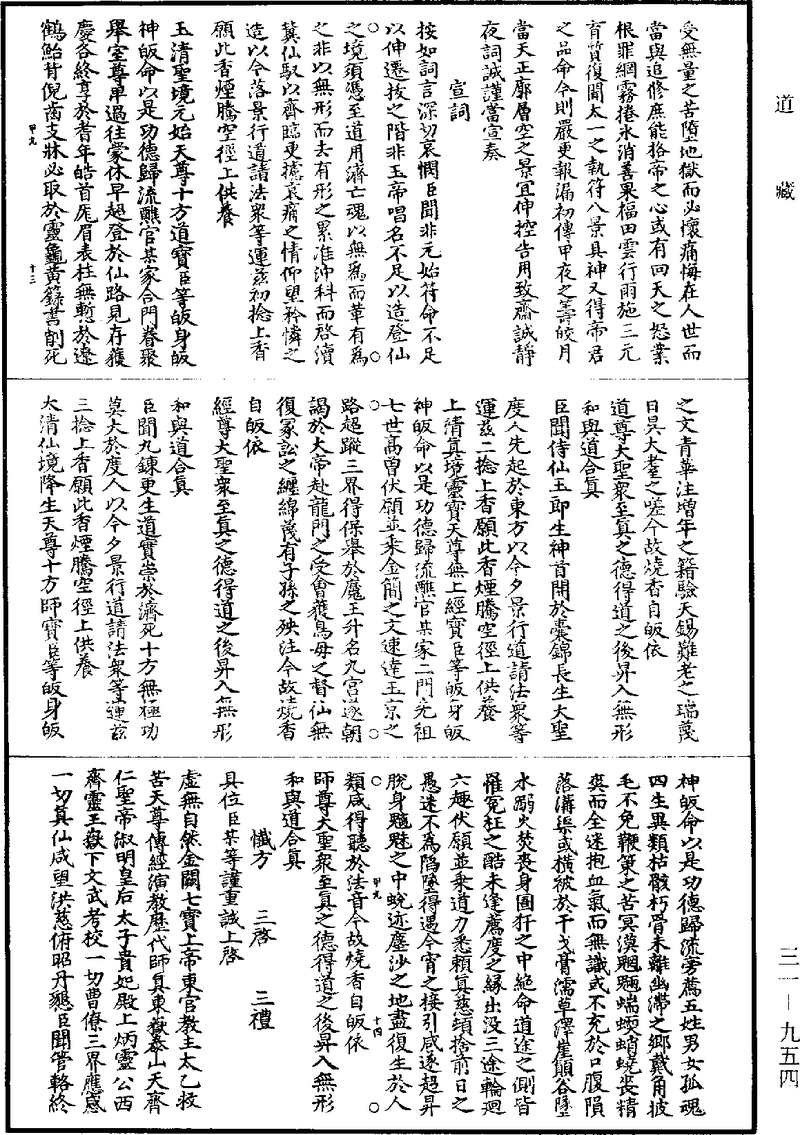 道藏
受無量之苦墮地獄而必懷痛悔在人世而
當與追修庶能格帝之心或有回天之怒業
根罪網霧捲氷消善果福田雲行雨施三元
育質復聞太一之執符八景具神又得帝君
之品命令則嚴更報漏初傳甲夜之籌皎月
當天正廓層空之景宜伸控告用致齋誠靜
夜詞誠謹當宣奏
宣詞
按如詞言深切哀憫臣聞非元始符命不足
以伸遷拔之階非玉帝唱名不足以造登仙
之境須憑至道用濟亡魂以無為而革有為
之非以無形而去有形之累准沖科而啓瀆
冀仙馭以齊臨更攄哀痛之情仰望矜憐之
造以今落景行道請法衆等運茲初捻上香
願此香煙騰空徑上供養
玉清聖境元始天尊十方道寶臣等皈身皈
神皈命以是功德歸流醮官某家合門眷聚
舉室尊卑過往蒙休早超登於仙路見存獲
慶各終享於耆年皓首厖眉表柱無慙於遼
鶴鮐背倪齒支牀必取於靈龜黄籙書削死
甲九
十三
之文青華注增年之籍驗天錫難老之瑞蔑
日昃大耋之嗟今故燒香自皈依
道尊大聖衆至眞之德得道之後昇入無形
和與道合眞
臣聞侍仙玉郎生神首開於囊錦長生大聖
度人先起於東方以今夕景行道請法衆等
運茲二捻上香願此香煙騰空徑上供養
上清眞境靈寶天尊無上經寶臣等皈身皈
神皈命以是功德歸流醮官某家二門先祖
七世高曽伏願並乘金簡之文速達玉京之
路超蹤三界得保舉於魔王升名九宮遂朝
謁於大帝赴龍門之受會獲鳥母之督仙無
復冢訟之纏綿蔑有子孫之殃注今故燒香
自皈依
經尊大聖衆至眞之德得道之後昇入無形
和與道合眞
臣聞九鍊更生道實崇於濟死十方無極功
莫大於度人以今夕景行道請法衆等運茲
三捻上香願此香煙騰空徑上供養
太清仙境降生天尊十方師寶臣等皈身皈
神皈命以是功德歸流旁薦五姓男女孤魂
四生異類枯骸朽骨未離幽滯之鄉戴角披
毛不免鞭箠之苦冥漠魍魎蝡蛸蟯喪精
爽而全迷抱血氣而無識或不充於口腹隕
落溝渠或横被於干戈膏濡草澤崖顛谷墜
水溺火焚喪身囹犴之中絕命道途之側皆
罹冤枉之酷未逢薦度之緣出没三途輪廻
六趣伏願並乘道力悉賴眞慈頓捨前日之
愚迷不為陷墜得遇今宵之接引咸遂超昇
脫身魑魅之中蛻迹塵沙之地盡復生於人
類咸得聽於法音今故燒香自皈依
甲九
十四
師尊大聖衆至眞之德得道之後昇入無形
和與道合眞
懺方　三啓　三禮
具位臣某等謹重誠上啓
虚無自然金闕七寶上帝東宮教主太乙救
苦天尊傳經演教歷代師眞東嶽泰山天齊
仁聖帝淑明皇后太子貴妃殿上炳靈公西
齊靈王嶽下文武考校一切曹僚三界應感
一切眞仙咸望洪慈俯昭丹懇臣聞管輅終
三一－九五四